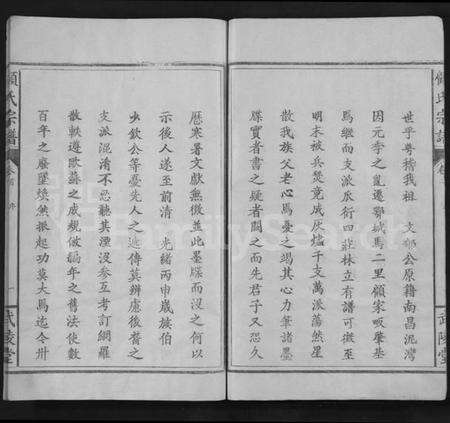 顧氏宗譜
卷
武陵堂
世乎粵稽我祖 文郁公原籍南昌泥灣
因元季之亂遷鄂城馬二里顧家畈肇基
焉繼而支派庶衍四莊林立有譜可徵至
明末被兵燹竟成灰燼千支萬派蕩然星
散我族父老心焉憂之竭其心力筆諸墨
牒實者書之疑者闕之而先君子又恐久
歷寒暑文獻無徵並此墨牒而沒之何以
示後人遂至前清 光緒丙申歲族伯
欽公等憂先人之遺傳莫辨慮後裔之
支派混淆不忍聽其湮沒參互考訂網羅
散軼遵歐蘇之成規倣編年之舊法使數
百年之廢墜煥然振起功莫大焉迄今卅
顧氏宗譜
卷首
一
武陵堂
FamilySearch